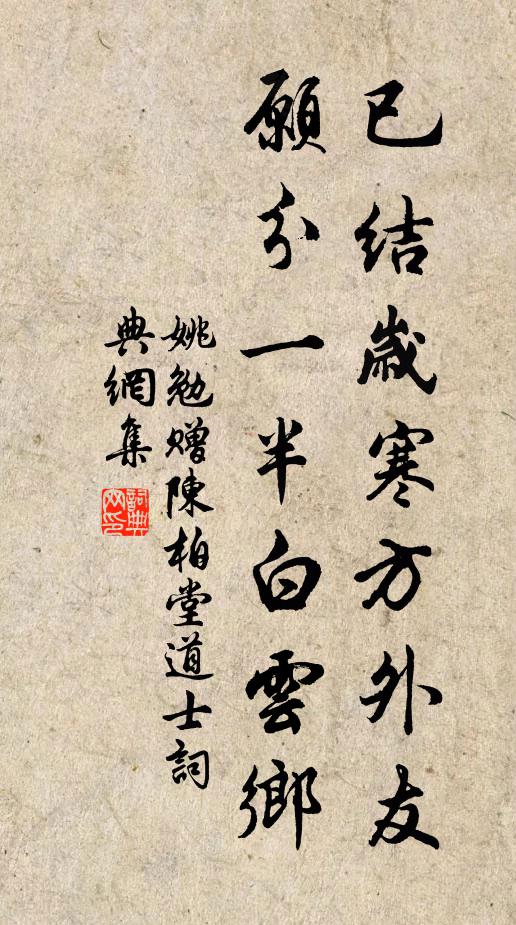 已結歲寒方外友
願分一半白雲鄉
姚勉贈陳柏堂道士詞
典網集
詞典網印